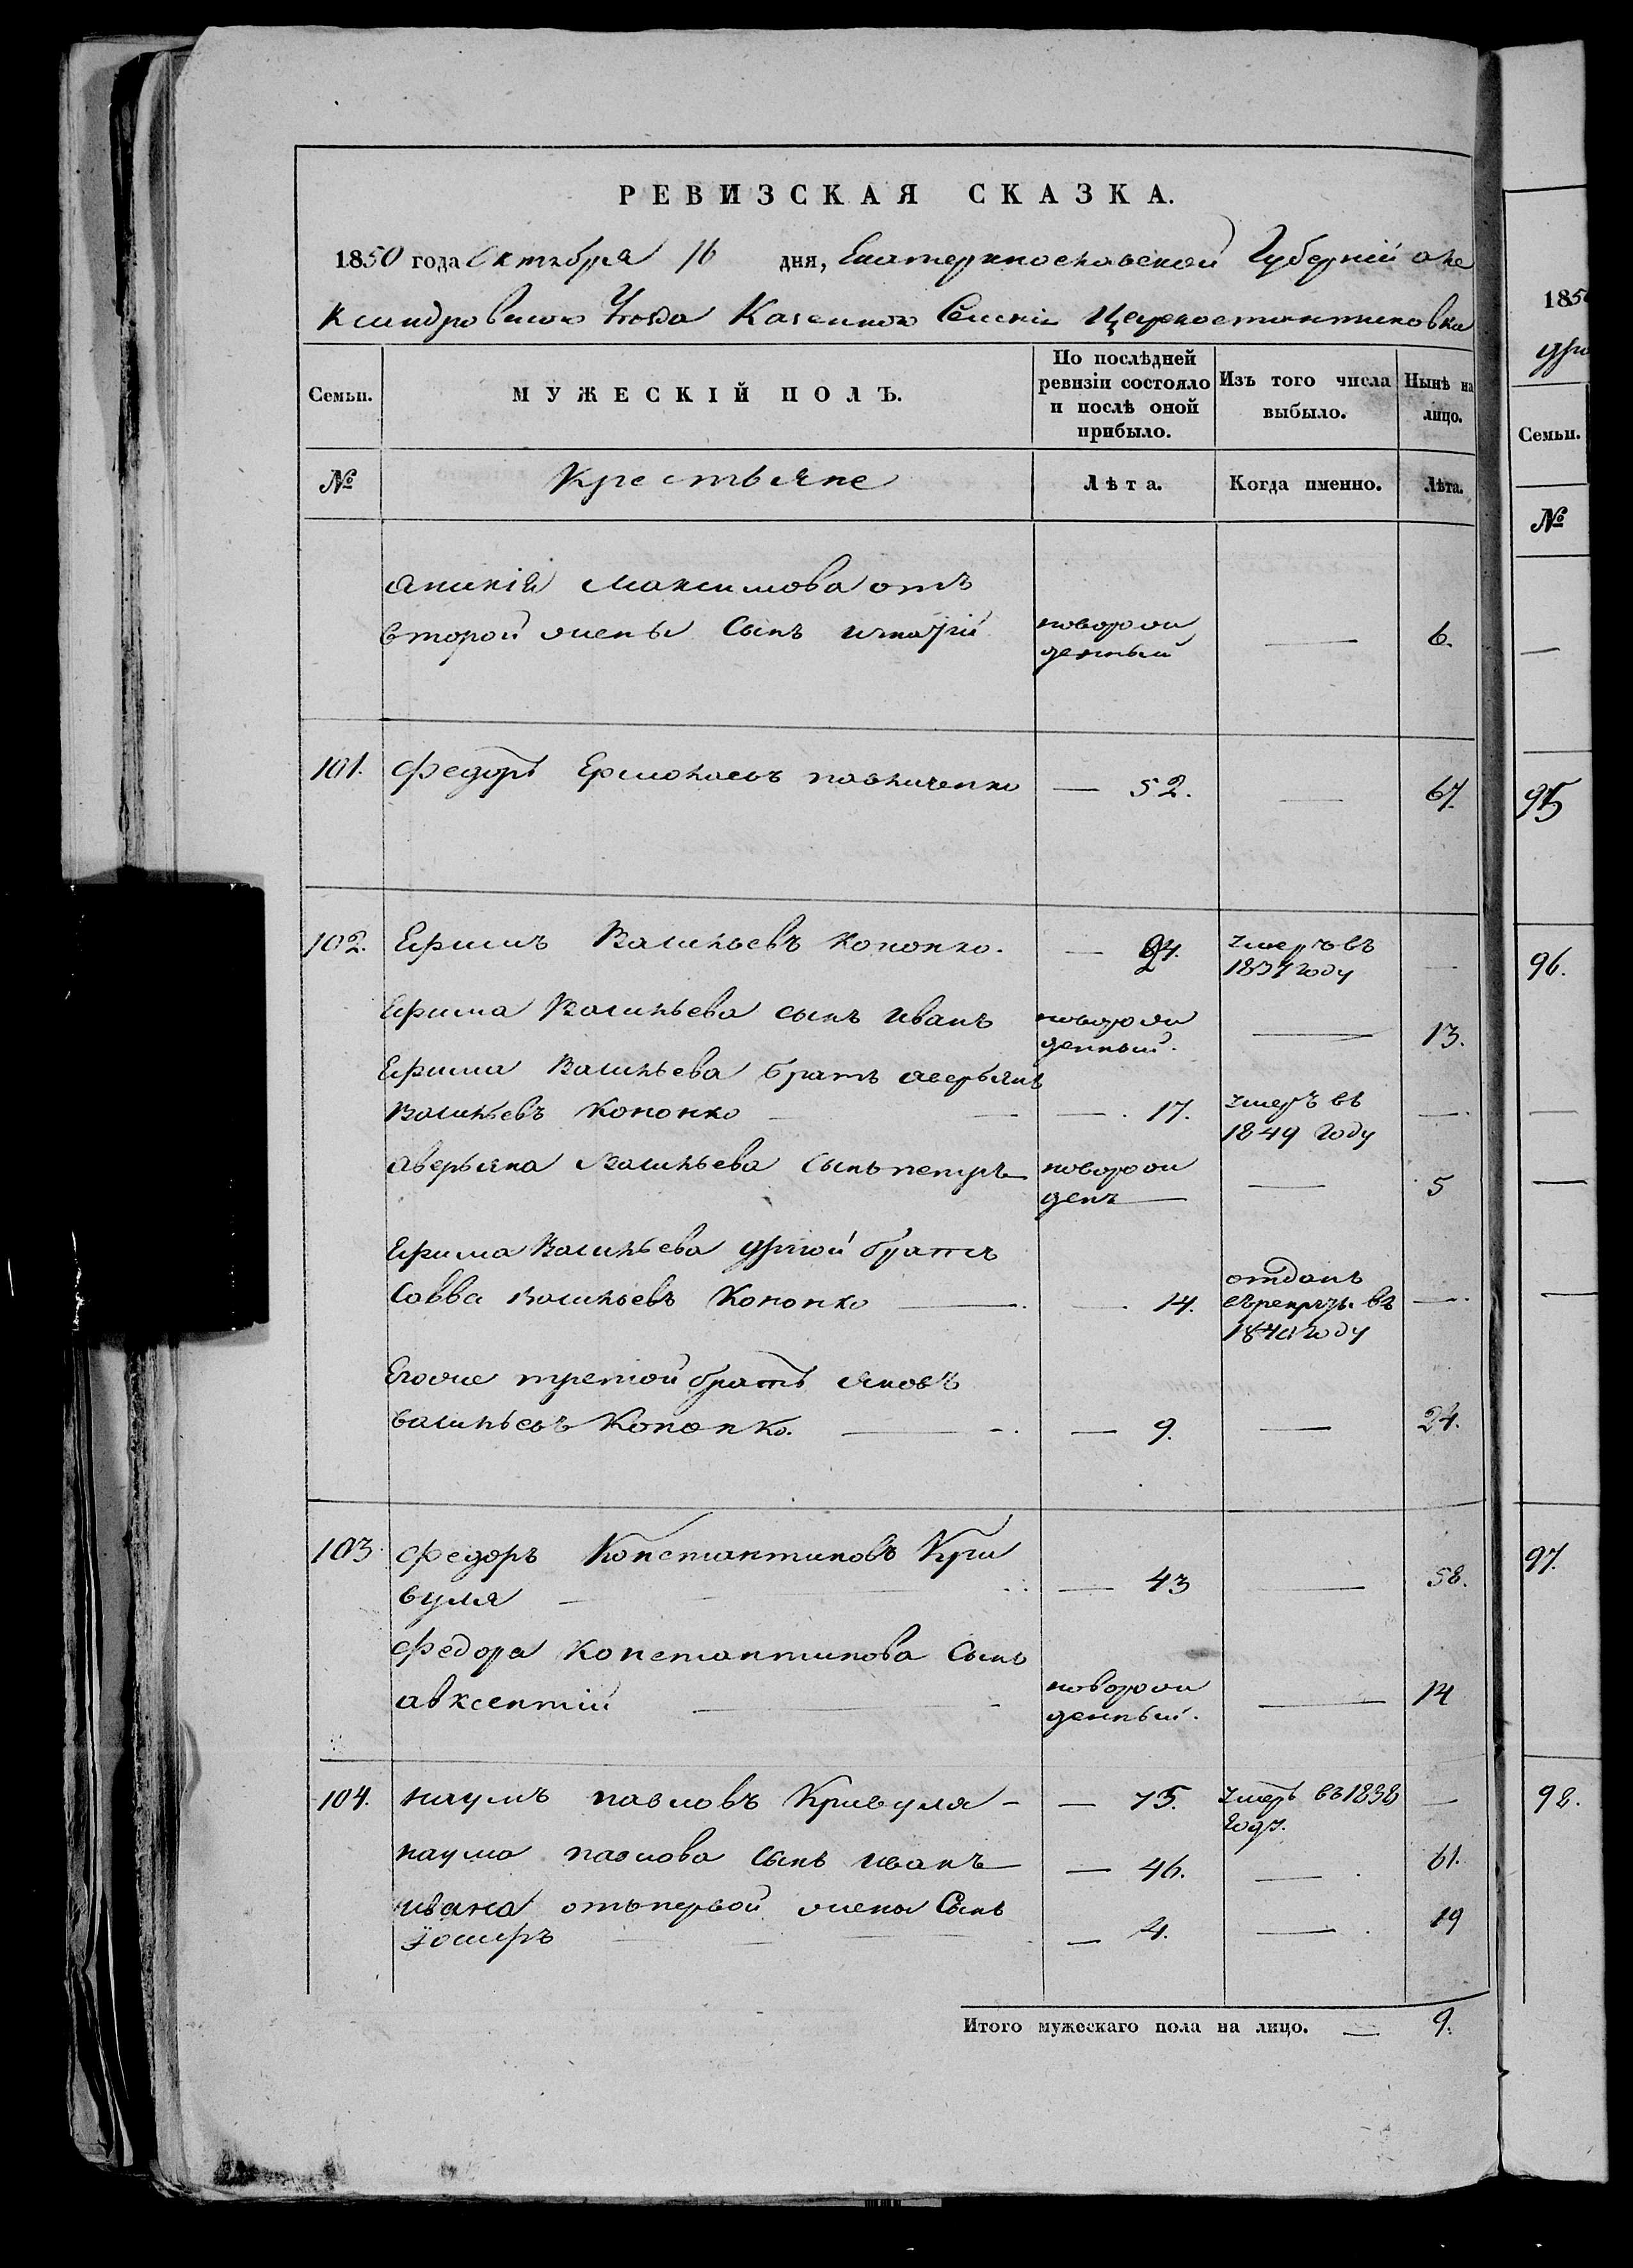 РЕВИЗСКАЯ СКАЗКА.
1850 года Октября 16 дня, Екатеринославской Губерніи але
ксандровского Уезда Казенного Селенія Цареконстантиновки
Семьи. МУЖЕСКІЙ ПОЛЪ. По послѣдней ревизіи состояло и послѣ оной прибыло. Изъ того числа выбыло. Нынѣ на лицо.
№ Крестьяне Лѣта. Когда именно. Лѣта.
аникія Максимова отъ
второй жены Сынъ игнатій новорож
денный — 6.
101. Федоръ Ермолаевъ павличенко — 52. — 67.
102. Ефимъ Васильевъ Кононко. — 24. умеръ въ
1837 году —
Ефима Васильева сынъ иванъ новорож
денный. — 13.
Ефима Васильева братъ аверьянъ
Васильевъ Кононко — — 17. умеръ въ
1849 году —
аверьяна Васильева сынъ петръ новорож
денъ — 5
Ефима Васильева другой братъ
Савва Васильевъ Кононко — — 14. отданъ
въ рекруты въ
1840 году —
Егоже третій братъ яковъ
васильевъ Кононко. — — 9. — 24.
103. Федоръ Константиновъ Кри
вуля — — 43 — 58.
Федора Константинова Сынъ
авксентій — новорож
денный. — 14
104. наумъ павловъ Кривуля — — 75. умеръ въ 1838
году. —
наума павлова сынъ иванъ — 46. — 61.
ивана отъ первой жены Сынъ
— 4. — 19
Итого мужескаго пола на лицо. — 9.
185
дри
Семьи.
№
95
96.
97.
98.